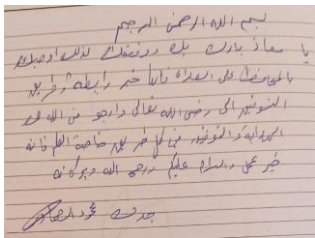 بسم الله الرحمن الرحيم
يا معاذ بارك بك ووفقك لذلك أوصيك
بالمحافظة على الصلاة فانها خير رابطة وطريق
التوفيق الى رضى الله تعالى وارجو من الله لك
الهداية والتوفيق في كل طريق خاصة العلم فانه
خير عمل والسلام عليكم ورحمة الله وبركاته
جدك محمود